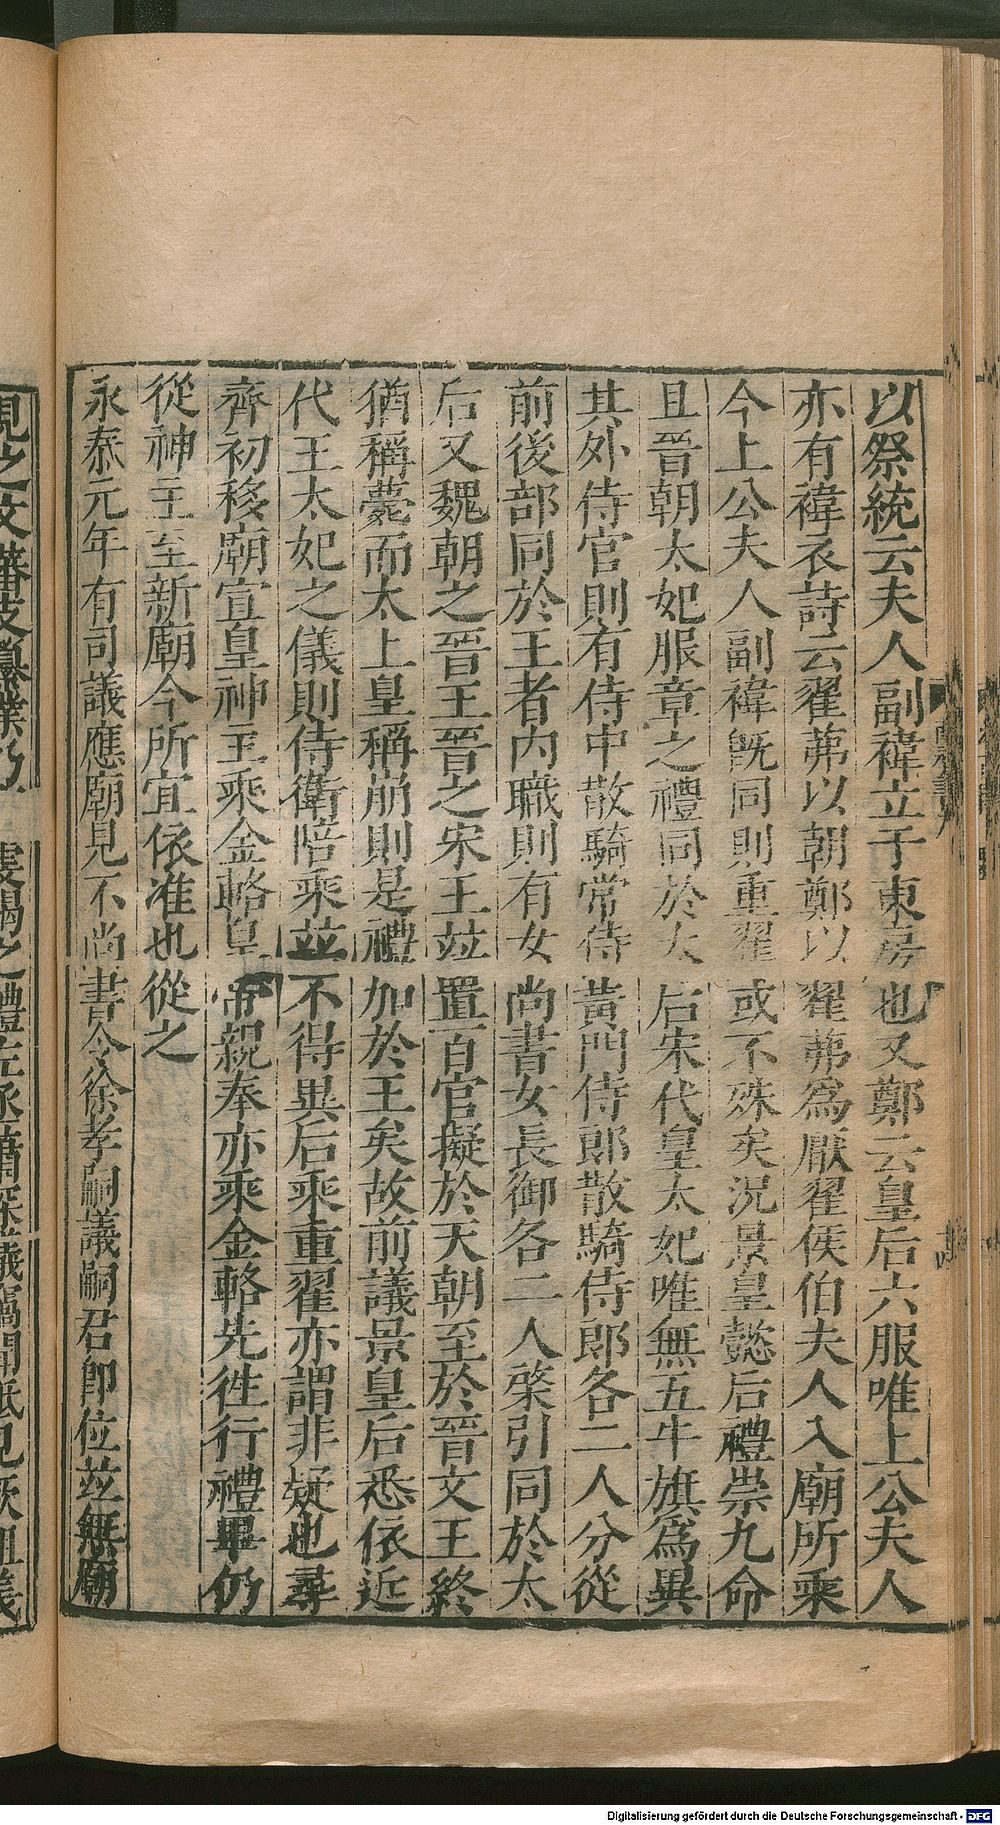 以祭統云夫人副褘立于東房也又鄭云皇后六服唯上公夫人
亦有褘衣詩云翟茀以朝鄭以翟茀爲厭翟侯伯夫人入廟所乘
今上公夫人副褘旣同則重翟或不殊矣況景皇懿后禮崇九命
且晉朝太妃服章之禮同於太后宋代皇太妃唯無五牛旗爲異
其外侍官則有侍中散騎常侍黃門侍郎散騎侍郎各二人分從
前後部同於王者內職則有女尚書女長御各二人棨引同於太
后又魏朝之晉王晉之宋王竝置百官擬於天朝至於晉文王終
猶稱薨而太上皇稱崩則是禮加於王矣故前議景皇后悉依近
代王太妃之儀則侍衛陪乘竝不得異后乘重翟亦謂非疑也尋
齊初移廟宣皇神主乘金輅皇帝親奉亦乘金輅先徃行禮畢仍
從神主至新廟今所宜依准也從之
永泰元年有司議應廟見不尚書令徐孝嗣議嗣君卽位竝無廟
見之文蕃支纂業乃
虔謁之禮左丞蕭琛議竊聞祗見厥祖義
Digitalisierung gefördert durch die Deutsche Forschungsgemeinschaft - DFG